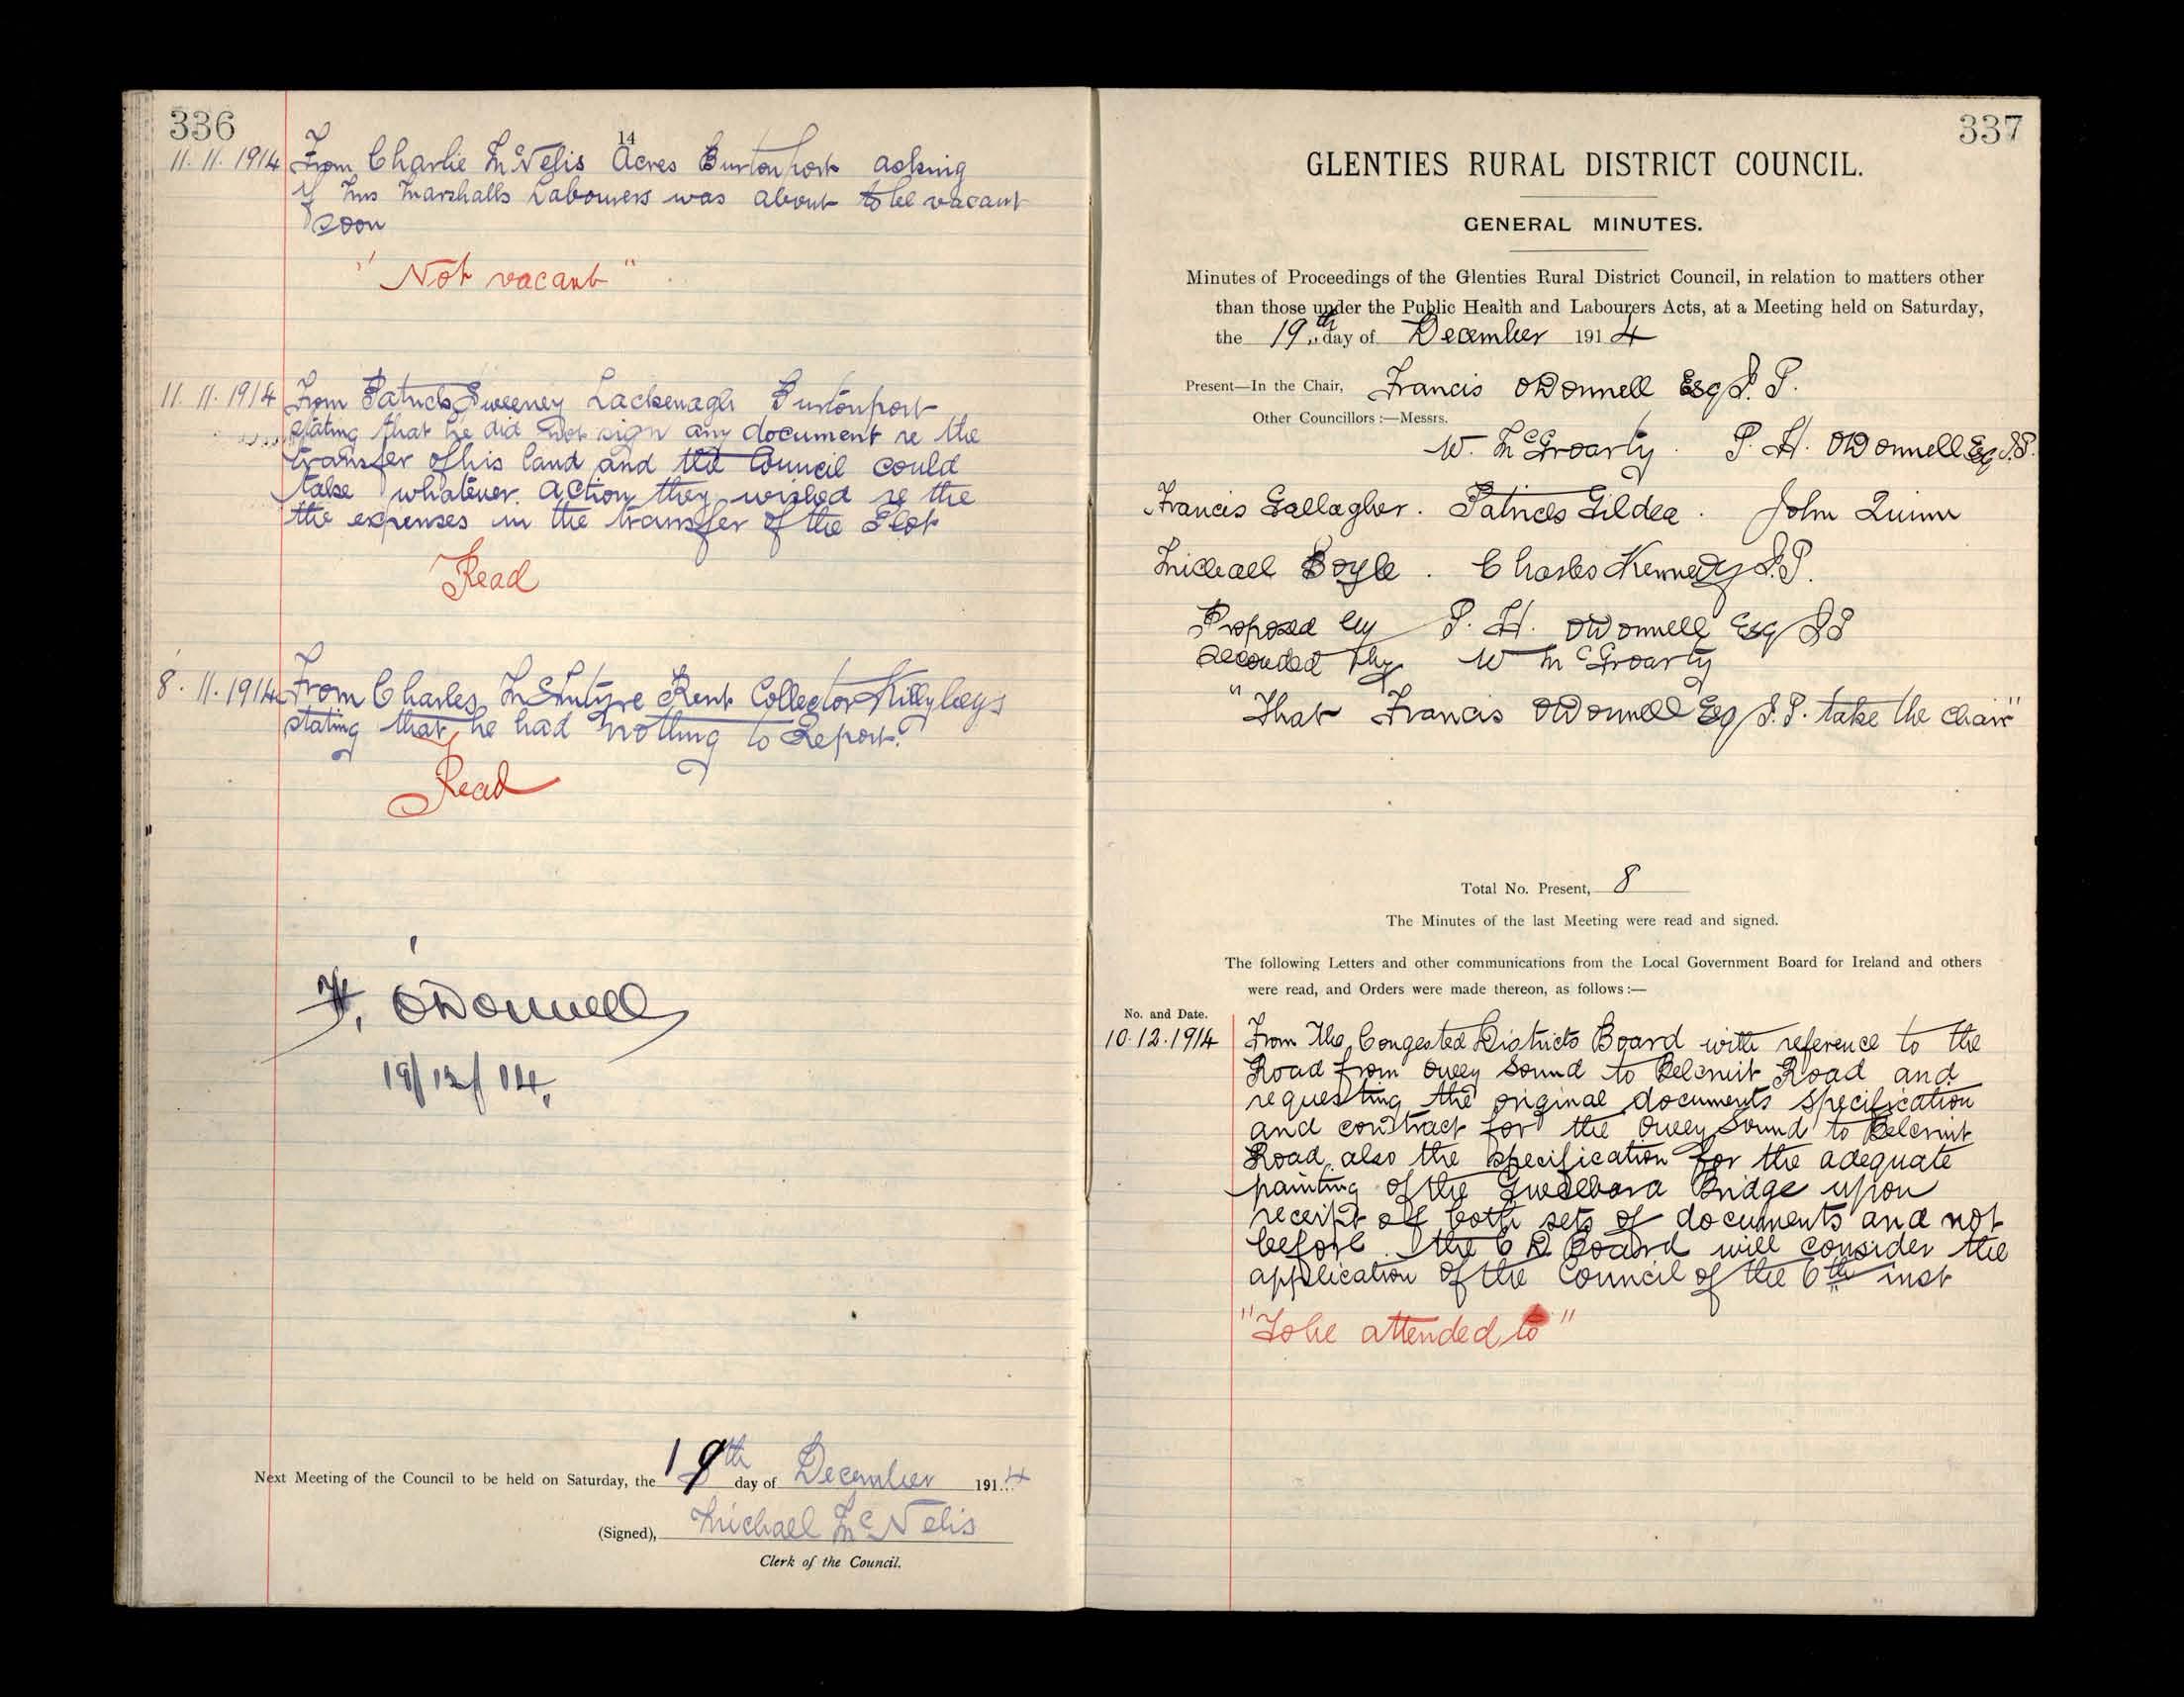 336
14
11.11.1914 From Charlie McNelis Acres Burtonport asking
if Mrs Marshalls Labourers was about to be vacant
soon
"Not vacant"
11.11.1914 From Patrick Sweeney Lackenagh Burtonport
stating that he did not sign any document re the
transfer of his land and the Council could
take whatever action they wished re the
the expenses in the transfer of the Plot
Read
8.11.1914 From Charles McIntyre Rent Collector Killybegs
stating that he had nothing to Report.
Read
F. O'Donnell
19/12/14.
Next Meeting of the Council to be held on Saturday, the 19th day of December 1914
(Signed), Michael McNelis
Clerk of the Council.
337
GLENTIES RURAL DISTRICT COUNCIL.
GENERAL MINUTES.
Minutes of Proceedings of the Glenties Rural District Council, in relation to matters other
than those under the Public Health and Labourers Acts, at a Meeting held on Saturday,
the 19th day of December 1914
Present—In the Chair, Francis O'Donnell Esq J.P.
Other Councillors:—Messrs.
W. McGroarty. P. H. O'Donnell Esq J.P.
Francis Gallagher. Patrick Gildea. John Quinn
Michael Boyle. Charles Kennedy J.P.
Proposed by P. H. O'Donnell Esq JP
Seconded by W McGroarty
"That Francis O'Donnell Esq J.P. take the chair"
Total No. Present, 8
The Minutes of the last Meeting were read and signed.
The following Letters and other communications from the Local Government Board for Ireland and others
were read, and Orders were made thereon, as follows:—
No. and Date.
10.12.1914 From the Congested Districts Board with reference to the
Road from Owey Sound to Belcruit Road and
requesting the original documents specification
and contract for the Owey Sound to Belcruit
Road also the specification for the adequate
painting of the Bridge upon
receipt of both sets of documents and not
before the C D Board will consider the
application of the Council of the 6th inst
"To be attended to"